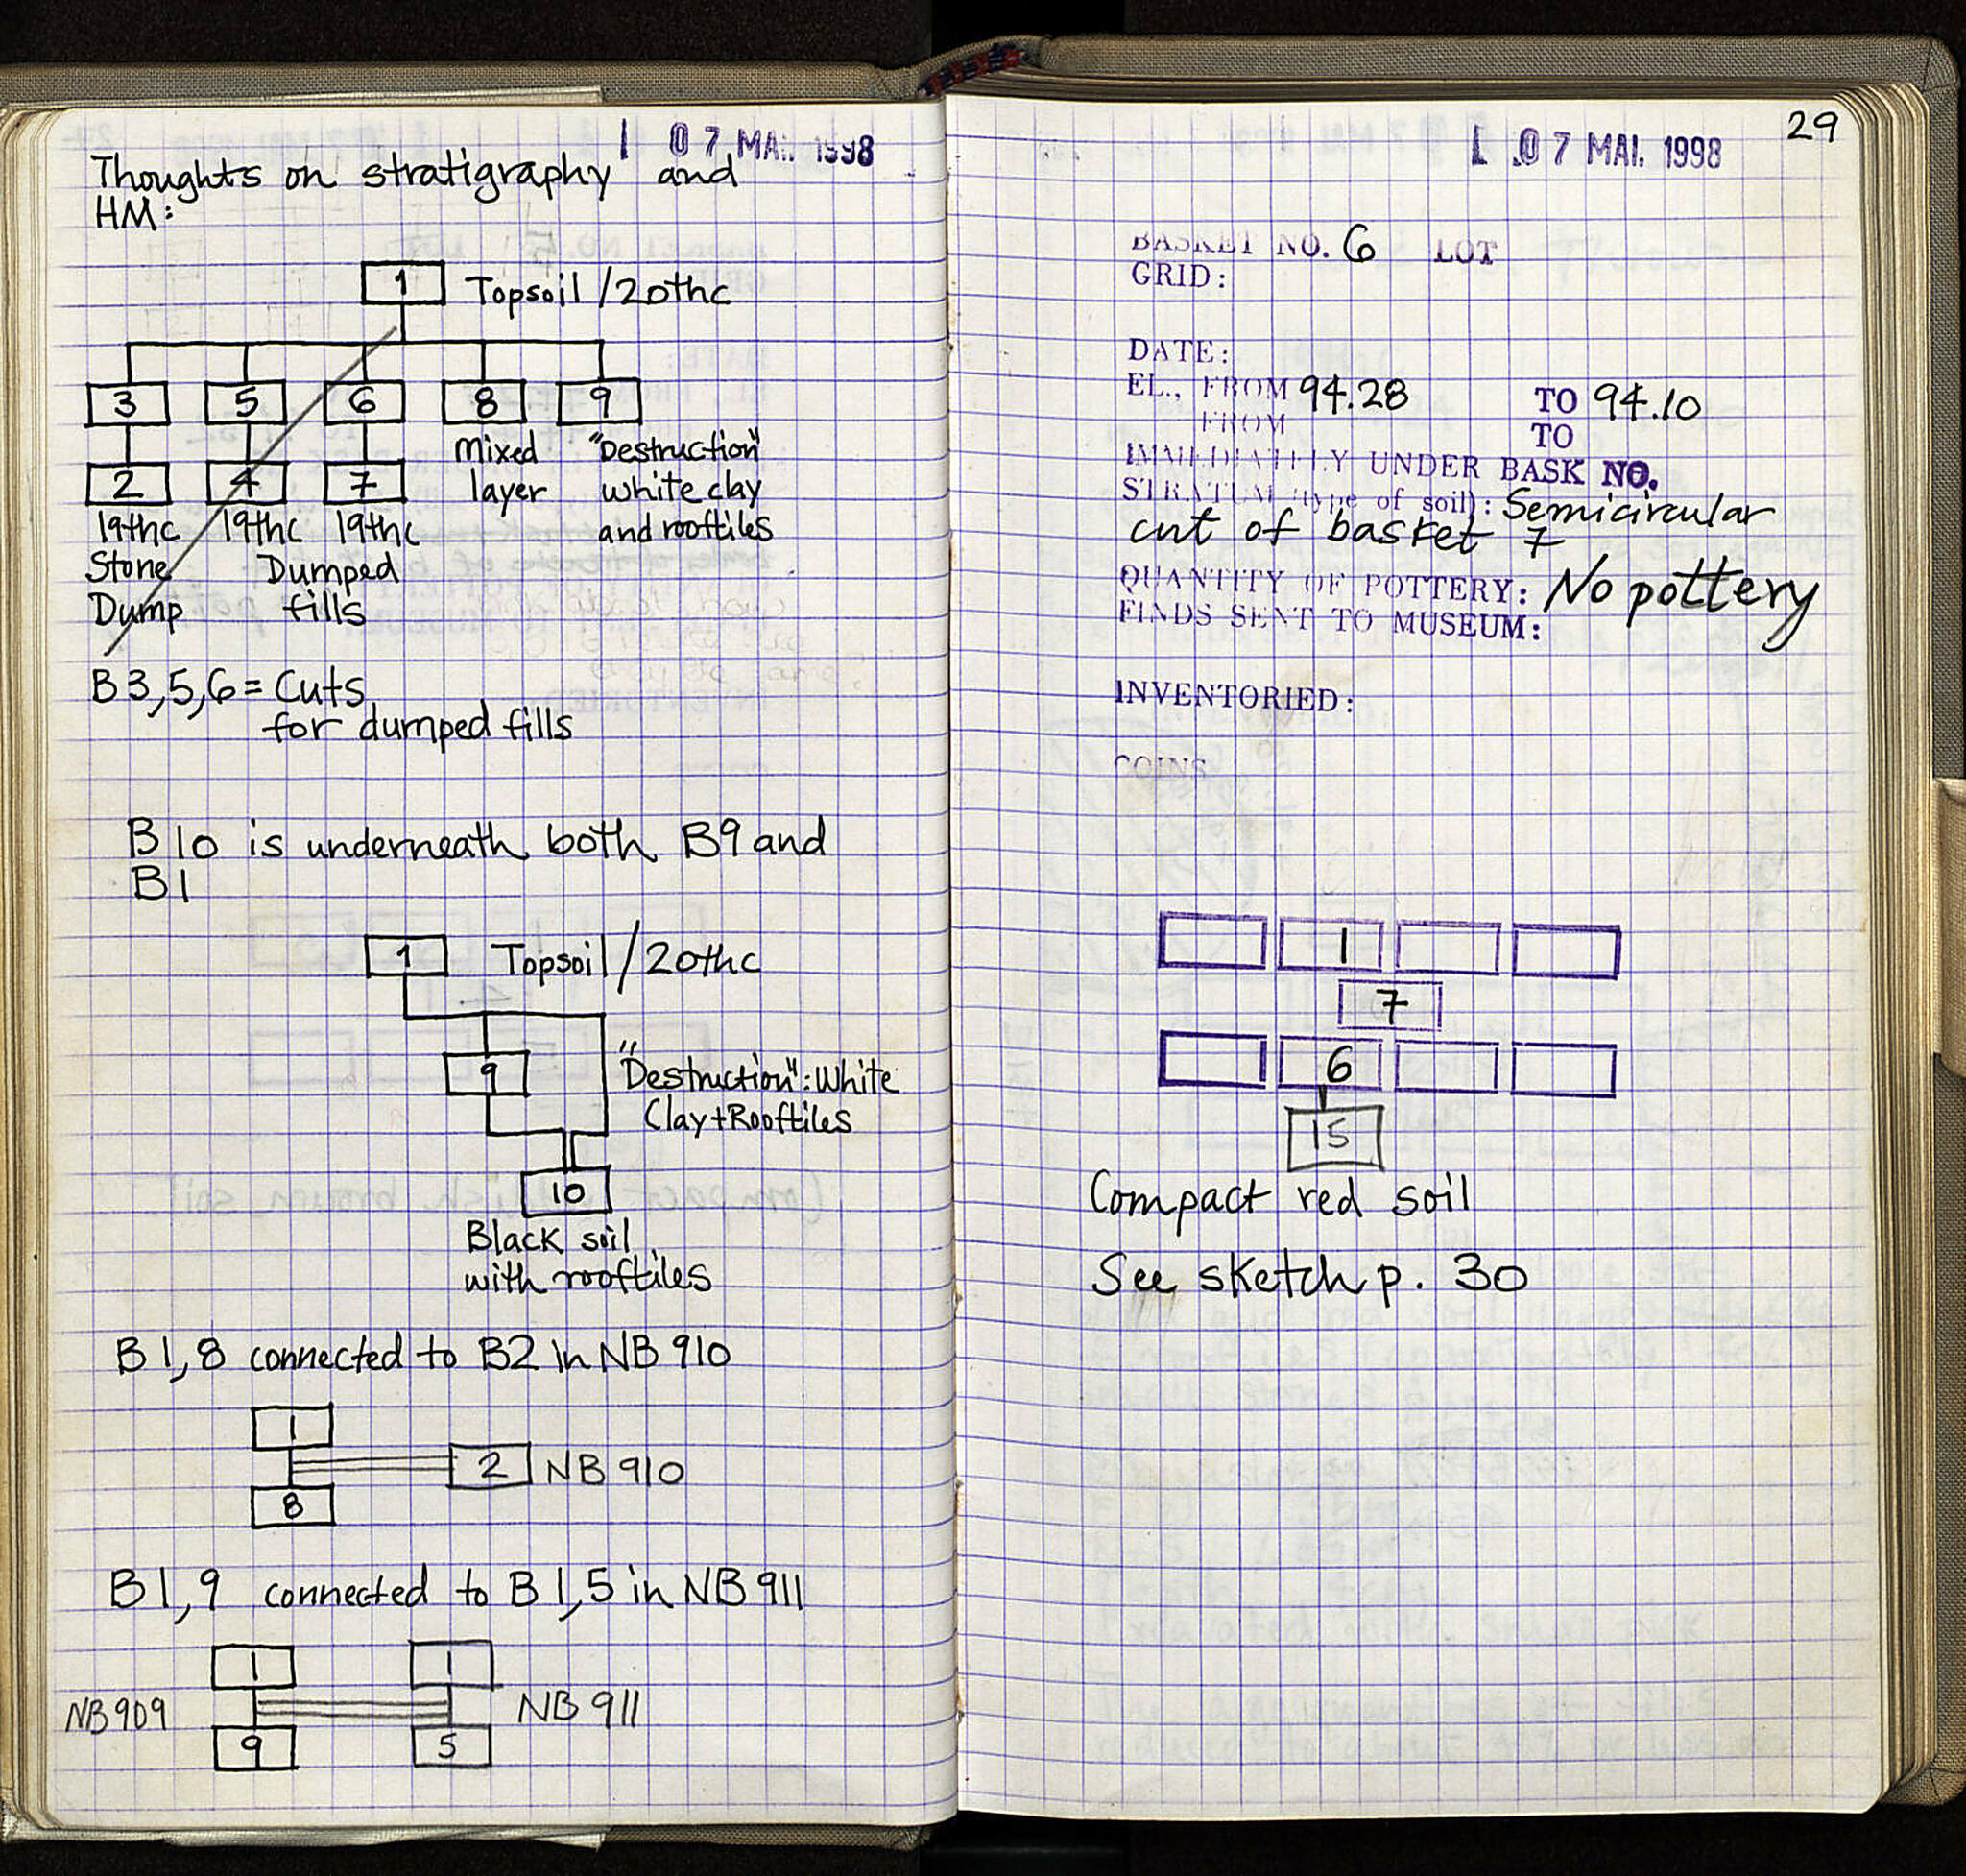 07 MAI. 1998
Thoughts on stratigraphy and
HM:
1 Topsoil/20thc
3 5 6 8 9
Mixed "Destruction"
2 4 7 layer white clay
19thc 19thc 19thc and rooftiles
Stone Dumped
Dump fills
B3,5,6 = Cuts
for dumped fills
B10 is underneath both B9 and
B1
1 Topsoil/20thc
9 "Destruction": White
Clay + Rooftiles
10
Black soil
with rooftiles
B1,8 connected to B2 in NB 910
1
2 NB 910
8
B1,9 connected to B1,5 in NB 911
1 1
NB 909 NB 911
9 5
29
07 MAI. 1998
BASKET NO. 6 LOT
GRID:
DATE:
EL., FROM 94.28 TO 94.10
FROM TO
IMMEDIATELY UNDER BASK NO.
STRATUM (type of soil): Semicircular
cut of basket 7
QUANTITY OF POTTERY: No pottery
FINDS SENT TO MUSEUM:
INVENTORIED:
COINS
1
7
6
15
Compact red soil
See sketch p. 30